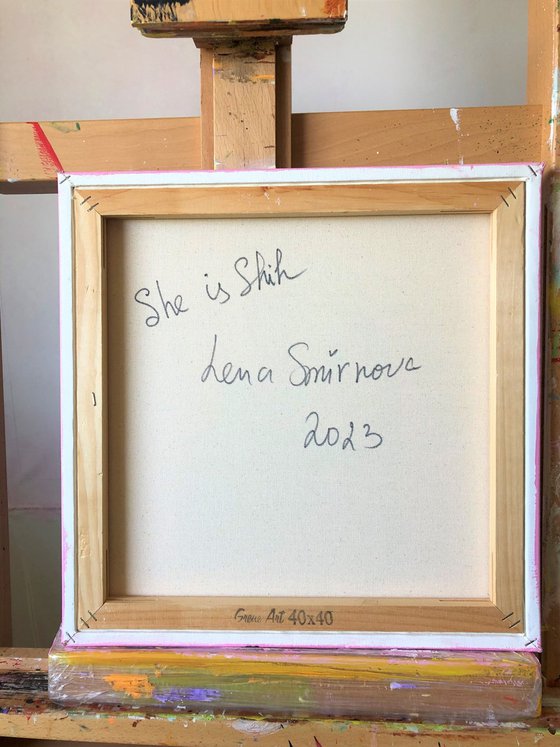 She is Shih
Lena Smirnova
2023
Art 40x40